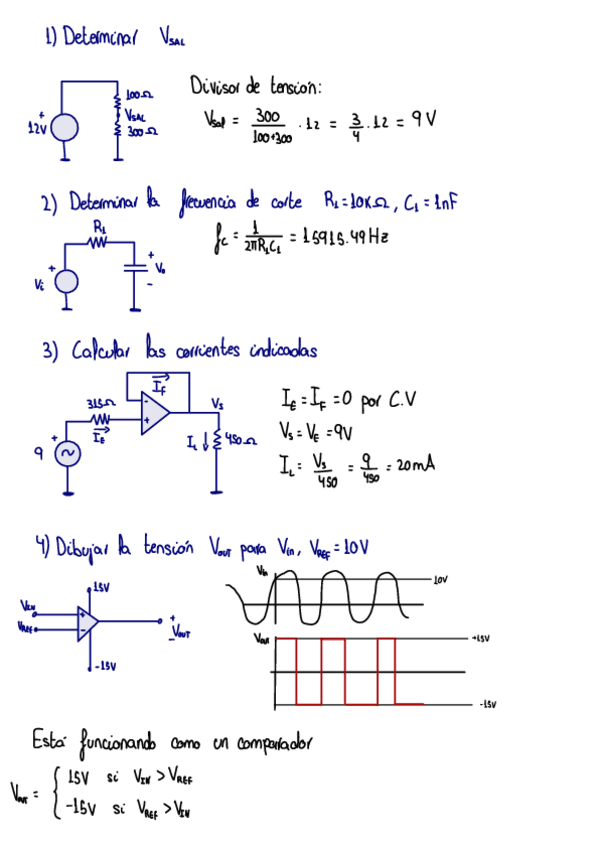 1) Determinar V_SAL
Divisor de tensión:
12V + 100Ω V_SAL 300Ω
V_sal = 300/(100+300) · 12 = 3/4 · 12 = 9V
2) Determinar la frecuencia de corte R₁=10KΩ, C₁=1nF
R₁
Vi + + V₀ -
fc = 1/(2πR₁C₁) = 15915.49Hz
3) Calcular las corrientes indicadas
I_F
315Ω I_E - + V_S
9 + ~ I_L 450Ω
I_E = I_F = 0 por C.V
V_S = V_E = 9V
I_L = V_S/450 = 9/450 = 20mA
4) Dibujar la tensión V_OUT para Vin, V_REF = 10V
15V
V_IN + V_REF - + V_OUT -
-15V
Vin 10V
Vout +15V
-15V
Está funcionando como un comparador
V_out = { 15V si V_IN > V_REF
-15V si V_REF > V_IN